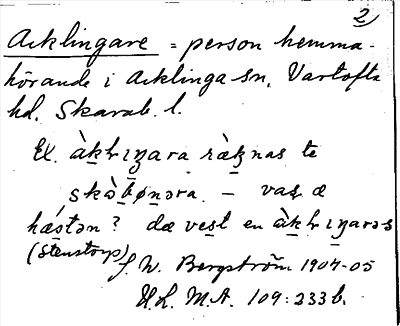 2
Acklingare = person hemma-
hörande i Acklinga sn, Vartofta
hd, Skarab. l.
Ex. àkłıŋara ràknas te
skòbønəra. – vaṣ æ
hǽstən? dæ vest en àkłıŋarə-s
(Stenstorp)
S. W. Bergström 1904-05
U.L.M.A. 109:233 b.